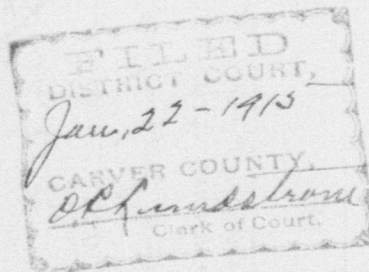 FILED
DISTRICT COURT,
Jan, 22 - 1915
CARVER COUNTY,
Clerk of Court.